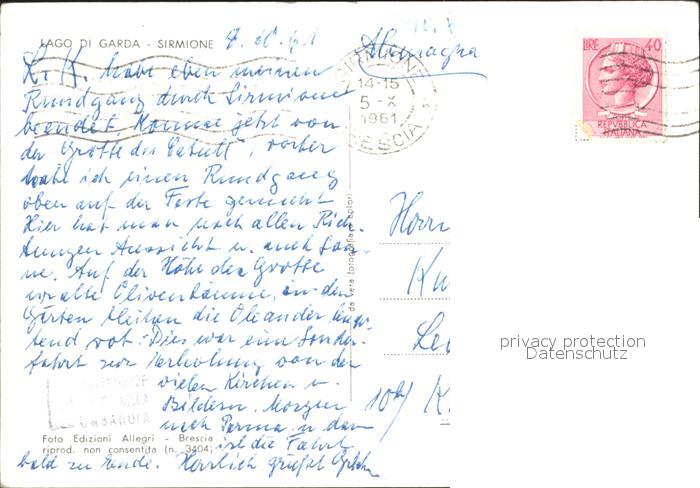 LAGO DI GARDA - SIRMIONE
Alemagna
L. K. habe eben meinen
Rundgang durch Sirmione
beendet. Komme jetzt von
der Grotte des Catull", vorher
habe ich einen Rundgang
oben auf der Feste gemacht
Hier hat man nach allen Rich-
tungen Aussicht u. auch Son-
ne. Auf der Höhe der Grotte
uralte Olivenbäume, in den
Gärten blühen die Oleander leuch-
tend rot. Dies war eine Sonder-
fahrt zur Erholung von den
vielen Kirchen u.
Bildern. Morgen
nach Parma u. dann
ist die Fahrt
bald zu Ende. Herzlich grüßt
Foto Edizioni Allegri - Brescia
riprod. non consentita (n. 3404)
da vera fotografia a colori
SIRMIONE
14-15
5-X
1961
BRESCIA
LIRE 40
REPVBBLICA
ITALIANA
Herrn
Ku
Le
10a/ K.
privacy protection
Datenschutz